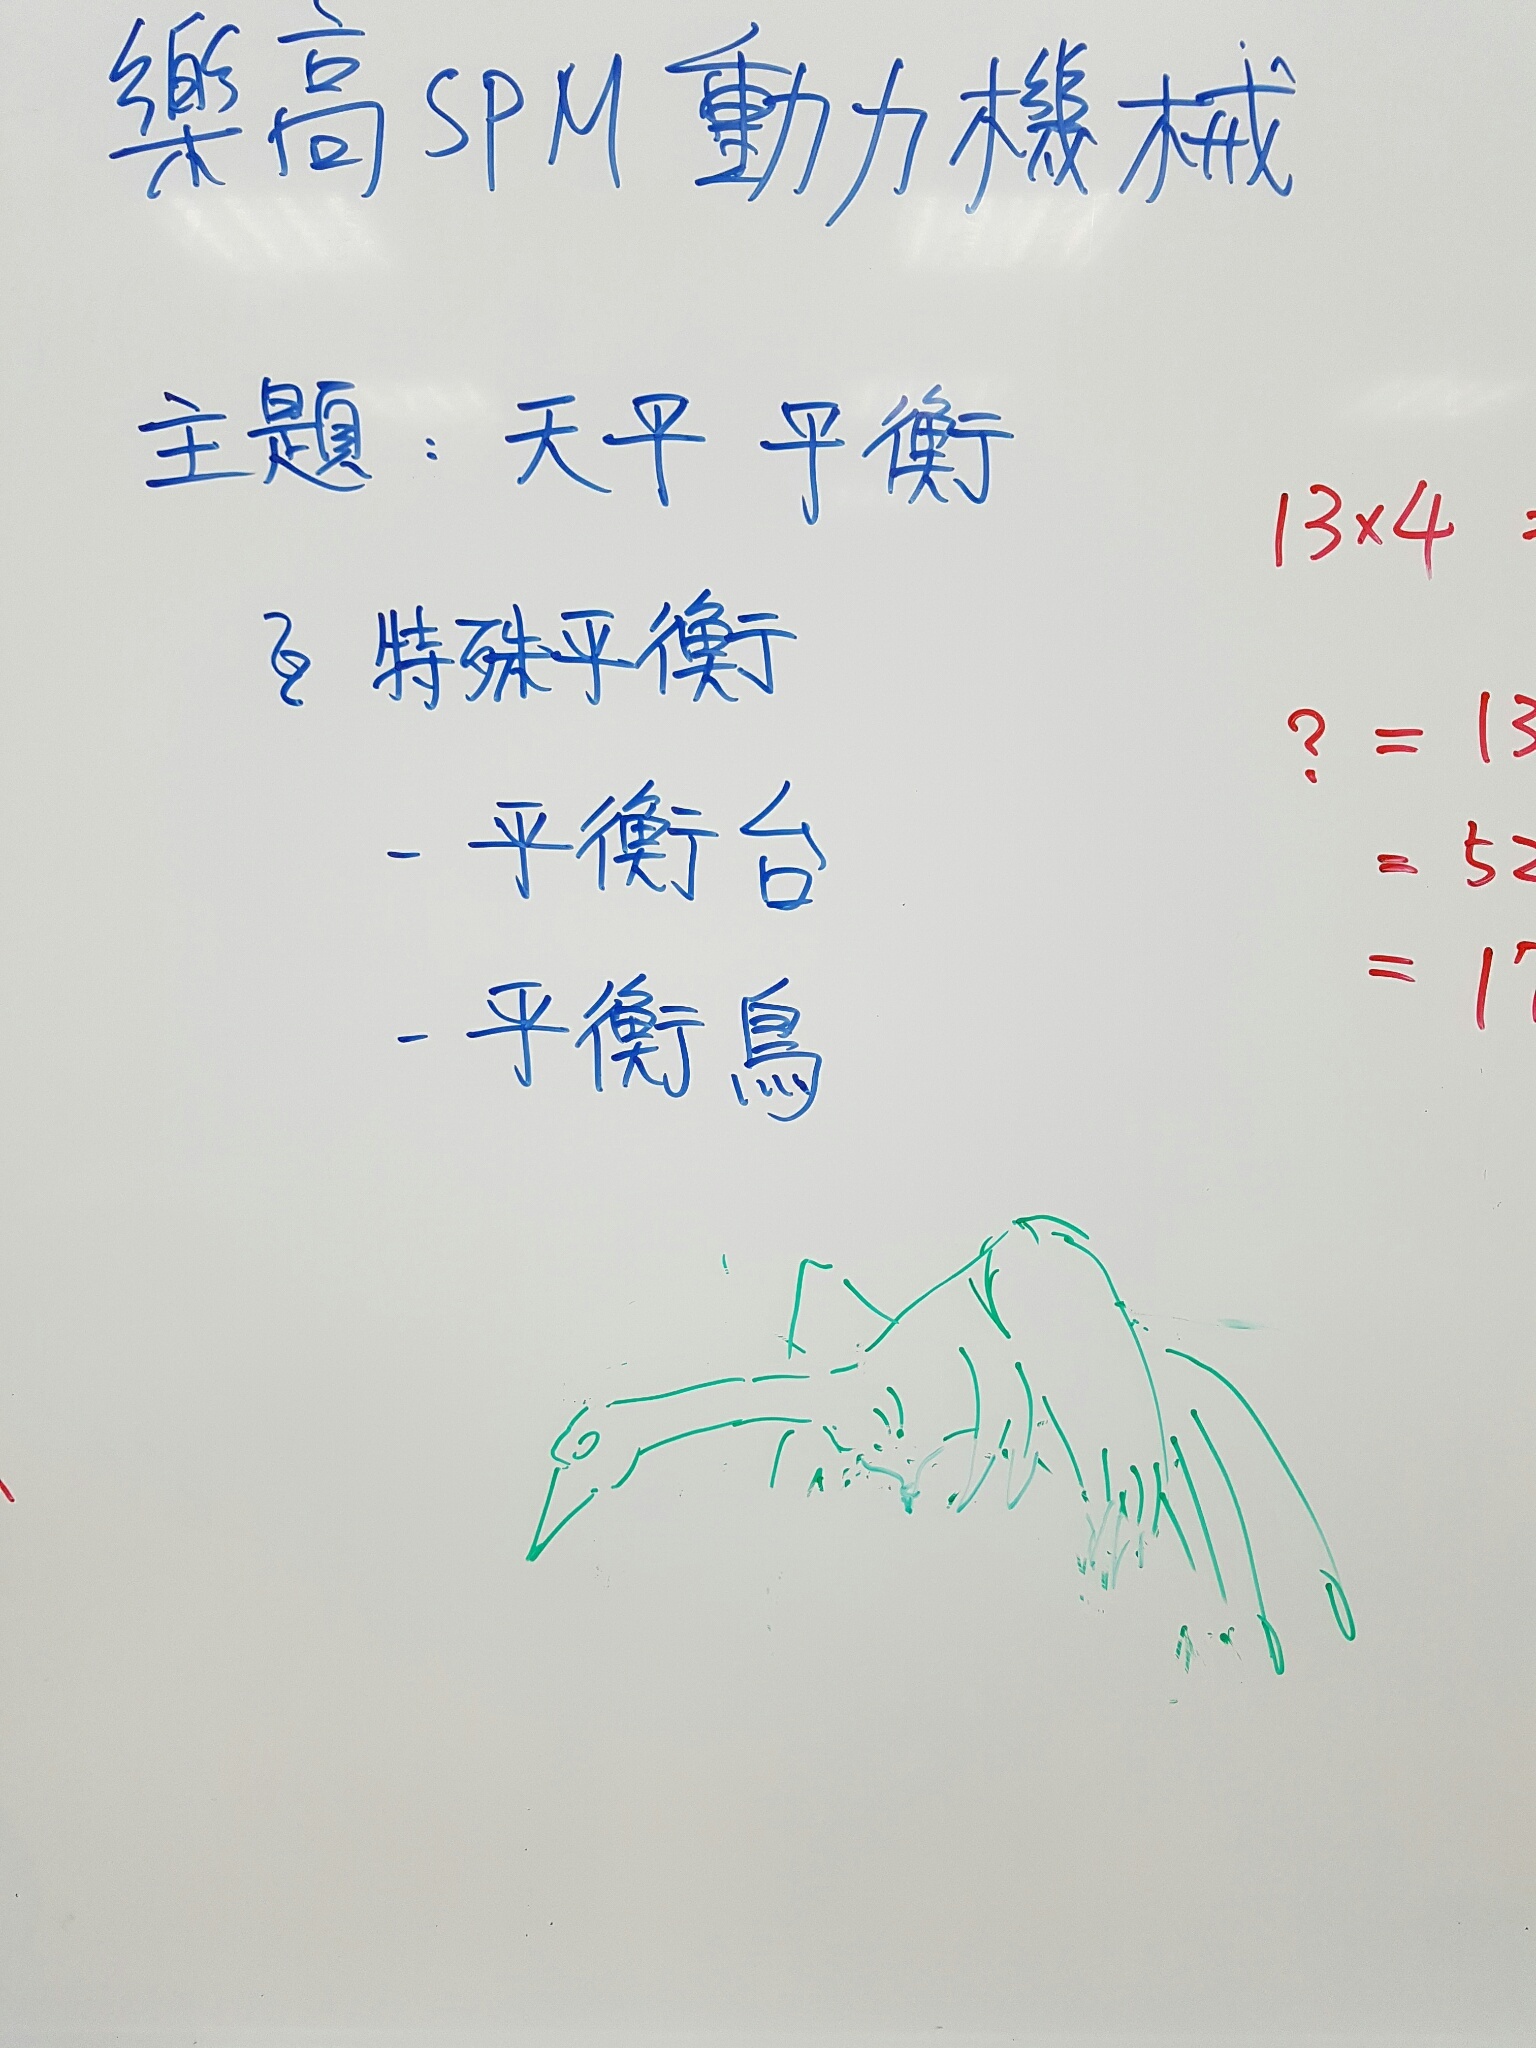 樂高SPM動力機械
主題：天平 平衡
& 特殊平衡
- 平衡台
- 平衡鳥
13×4 =
? = 13
= 52
= 17